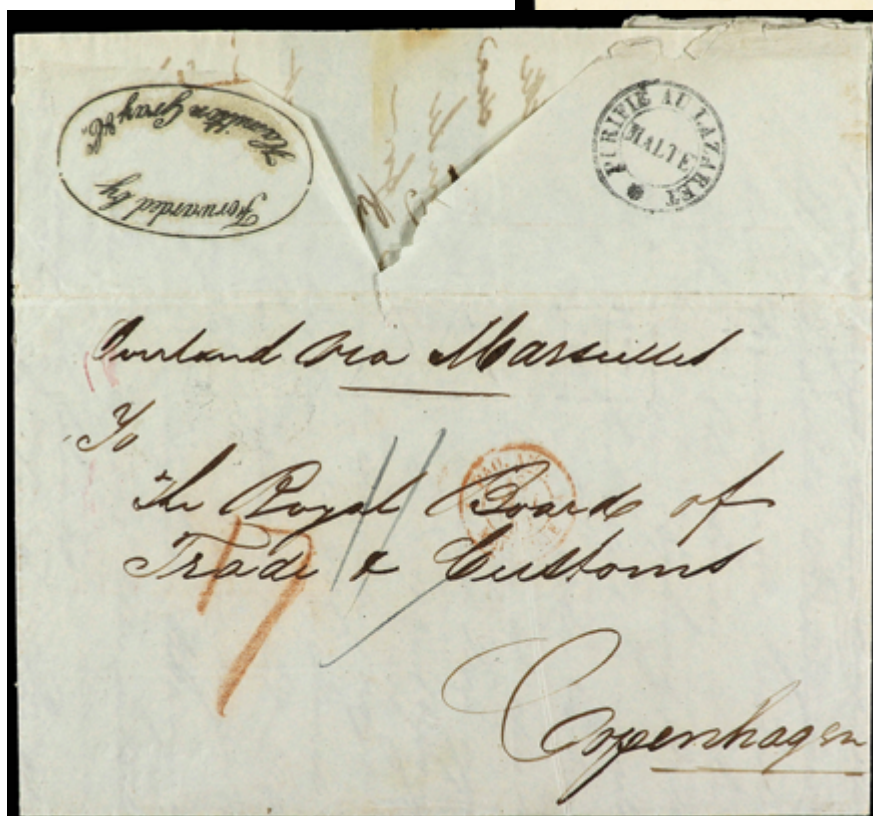 Forwarded by
Hamilton Gray & Co.
PURIFIÉ AU LAZARET
MALTE
Overland via Marseilles
To
The Royal Board of
Trade & Customs
17
11
Copenhagen